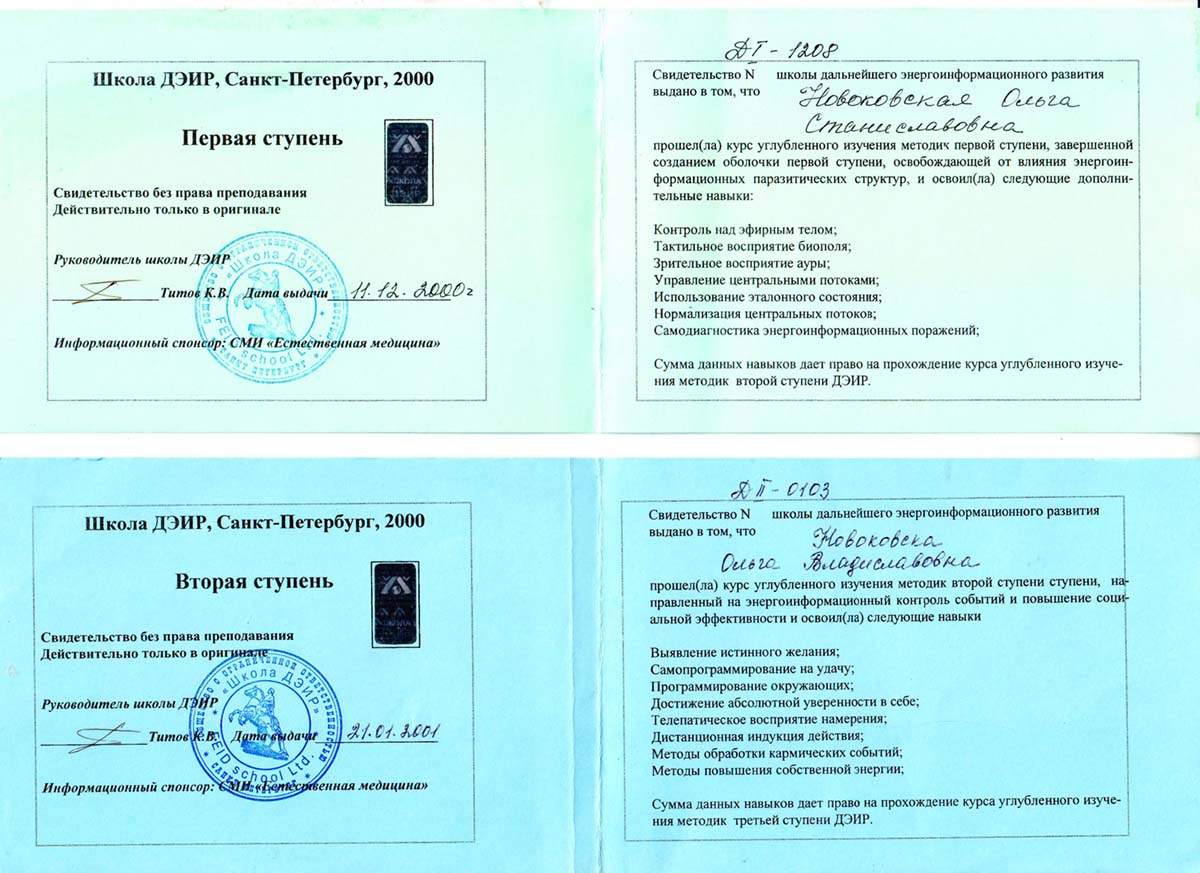 Школа ДЭИР, Санкт-Петербург, 2000
Первая ступень
ШКОЛА
ДЭИР
Свидетельство без права преподавания
Действительно только в оригинале
Руководитель школы ДЭИР
Титов К.В. Дата выдачи 11.12.2000г
Информационный спонсор: СМИ «Естественная медицина»
ОБЩЕСТВО С ОГРАНИЧЕННОЙ ОТВЕТСТВЕННОСТЬЮ
* САНКТ ПЕТЕРБУРГ *
"Школа ДЭИР"
FEID school Ltd.
ДI-1208
Свидетельство N школы дальнейшего энергоинформационного развития
выдано в том, что Новоковская Ольга
Станиславовна
прошел(ла) курс углубленного изучения методик первой ступени, завершенной
созданием оболочки первой ступени, освобождающей от влияния энергоин-
формационных паразитических структур, и освоил(ла) следующие дополни-
тельные навыки:
Контроль над эфирным телом;
Тактильное восприятие биополя;
Зрительное восприятие ауры;
Управление центральными потоками;
Использование эталонного состояния;
Нормализация центральных потоков;
Самодиагностика энергоинформационных поражений;
Сумма данных навыков дает право на прохождение курса углубленного изуче-
ния методик второй ступени ДЭИР.
Школа ДЭИР, Санкт-Петербург, 2000
Вторая ступень
ШКОЛА
Свидетельство без права преподавания
Действительно только в оригинале
Руководитель школы ДЭИР
Титов К.В. Дата выдачи 21.01.2001
Информационный спонсор: СМИ «Естественная медицина»
ОБЩЕСТВО С ОГРАНИЧЕННОЙ ОТВЕТСТВЕННОСТЬЮ
* САНКТ-ПЕТЕРБУРГ *
"Школа ДЭИР"
FEID school Ltd.
ДII-0103
Свидетельство N школы дальнейшего энергоинформационного развития
выдано в том, что Новоковска
Ольга Владиславовна
прошел(ла) курс углубленного изучения методик второй ступени ступени, на-
правленный на энергоинформационный контроль событий и повышение соци-
альной эффективности и освоил(ла) следующие навыки
Выявление истинного желания;
Самопрограммирование на удачу;
Программирование окружающих;
Достижение абсолютной уверенности в себе;
Телепатическое восприятие намерения;
Дистанционная индукция действия;
Методы обработки кармических событий;
Методы повышения собственной энергии;
Сумма данных навыков дает право на прохождение курса углубленного изуче-
ния методик третьей ступени ДЭИР.